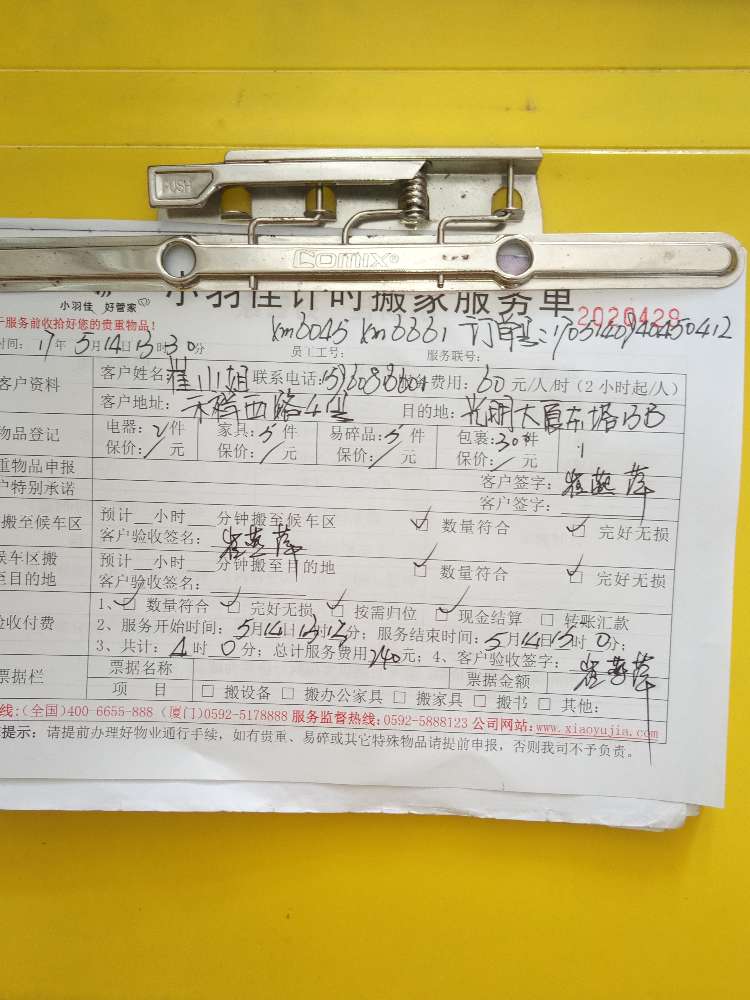 PUSH
COMIX®
小羽佳 好管家
小羽佳计时搬家服务单
于服务前收拾好您的贵重物品！ 2020429
km6045 km6661 订单号:
时间：17年5月14日13时30分 员工工号： 服务联号：
客户资料 客户姓名：崔小姐 联系电话： 服务费用：60元/人/时（2小时起/人）
客户地址：禾祥西路4 目的地：光明大厦东塔13B
物品登记 电器：2件 家具：5件 易碎品：5件 包裹：30件
保价：/元 保价：/元 保价：/元 保价：/元
重物品申报 客户签字：崔燕萍
户特别承诺 客户签字：
搬至候车区 预计__小时___分钟搬至候车区 ☑ 数量符合 ☑ 完好无损
客户验收签名：崔燕萍
候车区搬至目的地 预计__小时___分钟搬至目的地 ☑ 数量符合 ☑ 完好无损
客户验收签名：
验收付费 1、☑ 数量符合 ☑ 完好无损 ☑ 按需归位 ☑ 现金结算 □ 转账汇款
2、服务开始时间：5月14日13时分；服务结束时间：5月14日15时0分；
3、共计：4时0分；总计服务费用240元；4、客户验收签字：崔燕萍
票据栏 票据名称 票据金额
项 目 □ 搬设备 □ 搬办公家具 □ 搬家具 □ 搬书 □ 其他：
线：(全国)400-6655-888 (厦门)0592-5178888 服务监督热线：0592-5888123 公司网站：www.xiaoyujia.com
提示：请提前办理好物业通行手续，如有贵重、易碎或其它特殊物品请提前申报，否则我司不予负责。